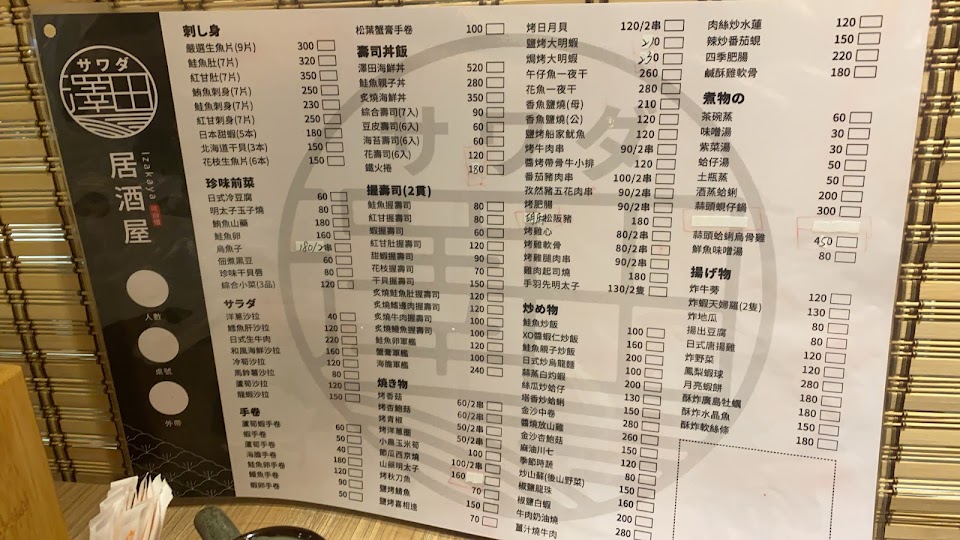 サワダ
澤田
Izakaya
居酒屋
人數
桌號
外帶
刺し身
嚴選生魚片(9片) 300
鮭魚肚(7片) 320
紅甘肚(7片) 350
鮪魚刺身(7片) 250
鮭魚刺身(7片) 230
紅甘刺身(7片) 250
日本甜蝦(5本) 180
北海道干貝(3本) 150
花枝生魚片(6本) 150
珍味前菜
日式冷豆腐 60
明太子玉子燒 80
鮪魚山藥 180
鮭魚卵 160
烏魚子 180/2串
佃煮黑豆 60
珍味干貝唇 80
綜合小菜(3品) 120
サラダ
洋蔥沙拉 40
鱈魚肝沙拉 120
日式生牛肉 220
和風海鮮沙拉 160
冷筍沙拉 120
馬鈴薯沙拉 80
蘆筍沙拉 120
龍蝦沙拉 150
手卷
蘆筍蝦手卷 60
蝦手卷 50
蘆筍手卷 40
海膽手卷 180
鮭魚卵手卷 120
鰻魚手卷 90
蝦卵手卷 50
松葉蟹膏手卷 100
壽司丼飯
澤田海鮮丼 520
鮭魚親子丼 280
炙燒海鮮丼 350
綜合壽司(7入) 90
豆皮壽司(6入) 60
海苔壽司(6入) 60
花壽司(6入) 120
鐵火捲 180
握壽司(2貫)
鮭魚握壽司 80
紅甘握壽司 80
蝦握壽司 60
紅甘肚握壽司 120
甜蝦握壽司 90
花枝握壽司 70
干貝握壽司 150
炙燒鮭魚肚握壽司 120
炙燒鰭邊肉握壽司 120
炙燒牛肉握壽司 100
炙燒鰻魚握壽司 90
鮭魚卵軍艦 120
蟹膏軍艦 100
海膽軍艦 240
燒き物
烤香菇 60/2串
烤杏鮑菇 60/2串
烤青椒 50/2串
烤洋蔥圈 50/2串
小鳥玉米筍
節瓜西京燒 100/2串
山藥明太子 160
烤秋刀魚 70
鹽烤鯖魚 150
鹽烤喜相逢 70
烤日月貝 120/2串
鹽烤大明蝦
焗烤大明蝦
午仔魚一夜干 260
花魚一夜干 280
香魚鹽燒(母) 210
香魚鹽燒(公) 120
鹽烤船家魷魚 180
烤牛肉串 90/2串
醬烤帶骨牛小排 120
番茄豬肉串 100/2串
孜然豬五花肉串 90/2串
烤肥腸 90/2串
松阪豬 180
烤雞心 80/2串
烤雞軟骨 80/2串
烤雞腿肉串 90/2串
雞肉起司燒 180
手羽先明太子 130/2隻
炒め物
鮭魚炒飯 100
XO醬蝦仁炒飯 160
鮭魚親子炒飯 200
日式炒烏龍麵 100
蒜蒸白灼蝦 200
絲瓜炒蛤仔 130
塔香炒蛤蜊 150
金沙中卷 280
醬燒放山雞 260
金沙杏鮑菇 150
麻油川七 120
季節時蔬 80
炒山蘇(後山野菜) 150
椒鹽龍珠 160
椒鹽白蝦 200
牛肉奶油燒 200
薑汁燒牛肉 280
肉絲炒水蓮 120
辣炒番茄蜆 150
四季肥腸 220
鹹酥雞軟骨 180
煮物の
茶碗蒸 60
味噌湯 30
紫菜湯 30
蛤仔湯 50
土瓶蒸 50
酒蒸蛤蜊 200
蒜頭蜆仔鍋 300
蒜頭蛤蜊烏骨雞 450
鮮魚味噌湯 80
揚げ物
炸牛蒡 120
炸蝦天婦羅(2隻) 130
炸地瓜 80
揚出豆腐 80
日式唐揚雞 120
炸野菜 120
鳳梨蝦球 120
月亮蝦餅 120
酥炸廣島牡蠣 180
酥炸水晶魚 150
酥炸軟絲條 180